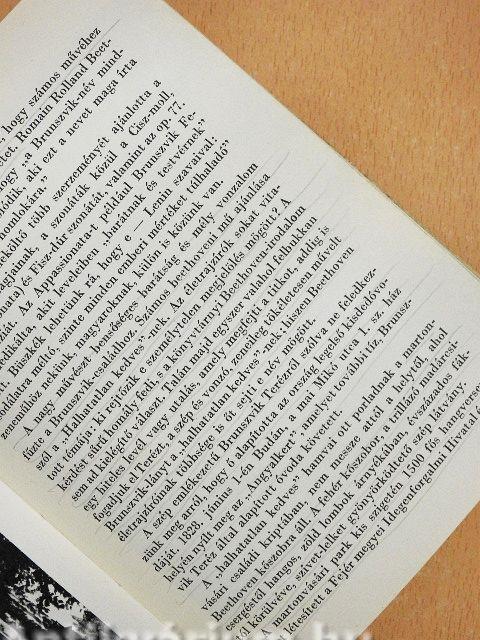 hogy számos művéhez
Romain Rolland Beet-
hogy „a Brunszvik-név mind-
ódik, aki ezt a nevet maga írta
homlokára."
költő több szerzeményét ajánlotta a
agjainak, a szonáták közül a Cisz-moll,
nata) és Fisz-dúr szonátát, valamint az op. 77.
iáját. Az Appassionata-t például Brunszvik Fe-
edikálta, akit leveleiben „barátnak és testvérnek"
t. Büszkék lehetünk rá, hogy e — Lenin szavaival:
odálatra méltó, szinte minden emberi mértéket túlhaladó"
zeneműhöz nekünk, magyaroknak, külön is közünk van.
A nagy művészt bensőséges barátság és mély vonzalom
fűzte a Brunszvik-családhoz. Számos beethoveni mű ajánlása
szól a „Halhatatlan kedves"-nek. Az életrajzírók sokat vita-
tott témája: ki rejtőzik e személytelen megjelölés mögött? A
kérdést sűrű homály fedi, s a könyvtárnyi Beethoven-irodalom
sem ad kielégítő választ. Talán majd egyszer valahol felbukkan
egy hiteles levél vagy utalás, amely megfejti a titkot, addig is
fogadjuk el Teréz, a szép és vonzó, zeneileg tökéletesen művelt
Brunszvik-lányt a „halhatatlan kedves"-nek, hiszen Beethoven
életrajzíróinak többsége is őt sejti e név mögött.
A szép emlékezetű Brunszvik Terézről szólva ne feledkez-
zünk meg arról, hogy ő alapította az ország legelső kisdedóvo-
dáját. 1828. június 1-én Budán, a mai Mikó utca 1. sz. ház
helyén nyílt meg az „Angyalkert", amelyet további tíz, Bruns-
vik Teréz által alapított óvoda követett.
A „halhatatlan kedves" hamvai ott porladnak a marton-
vásári családi kriptában, nem messze attól a helytől, ahol
Beethoven kőszobra áll. A fehér kőszobor, a trillázó madárcsi-
csergéstől hangos, zöld lombok árnyékában, évszázados fák-
tól körülvéve, szívet-lelket gyönyörködtető szép látvány.
martonvásári park kis szigetén 1500 fős hangverse
létesített a Fejér megyei Idegenforgalmi Hivatal é